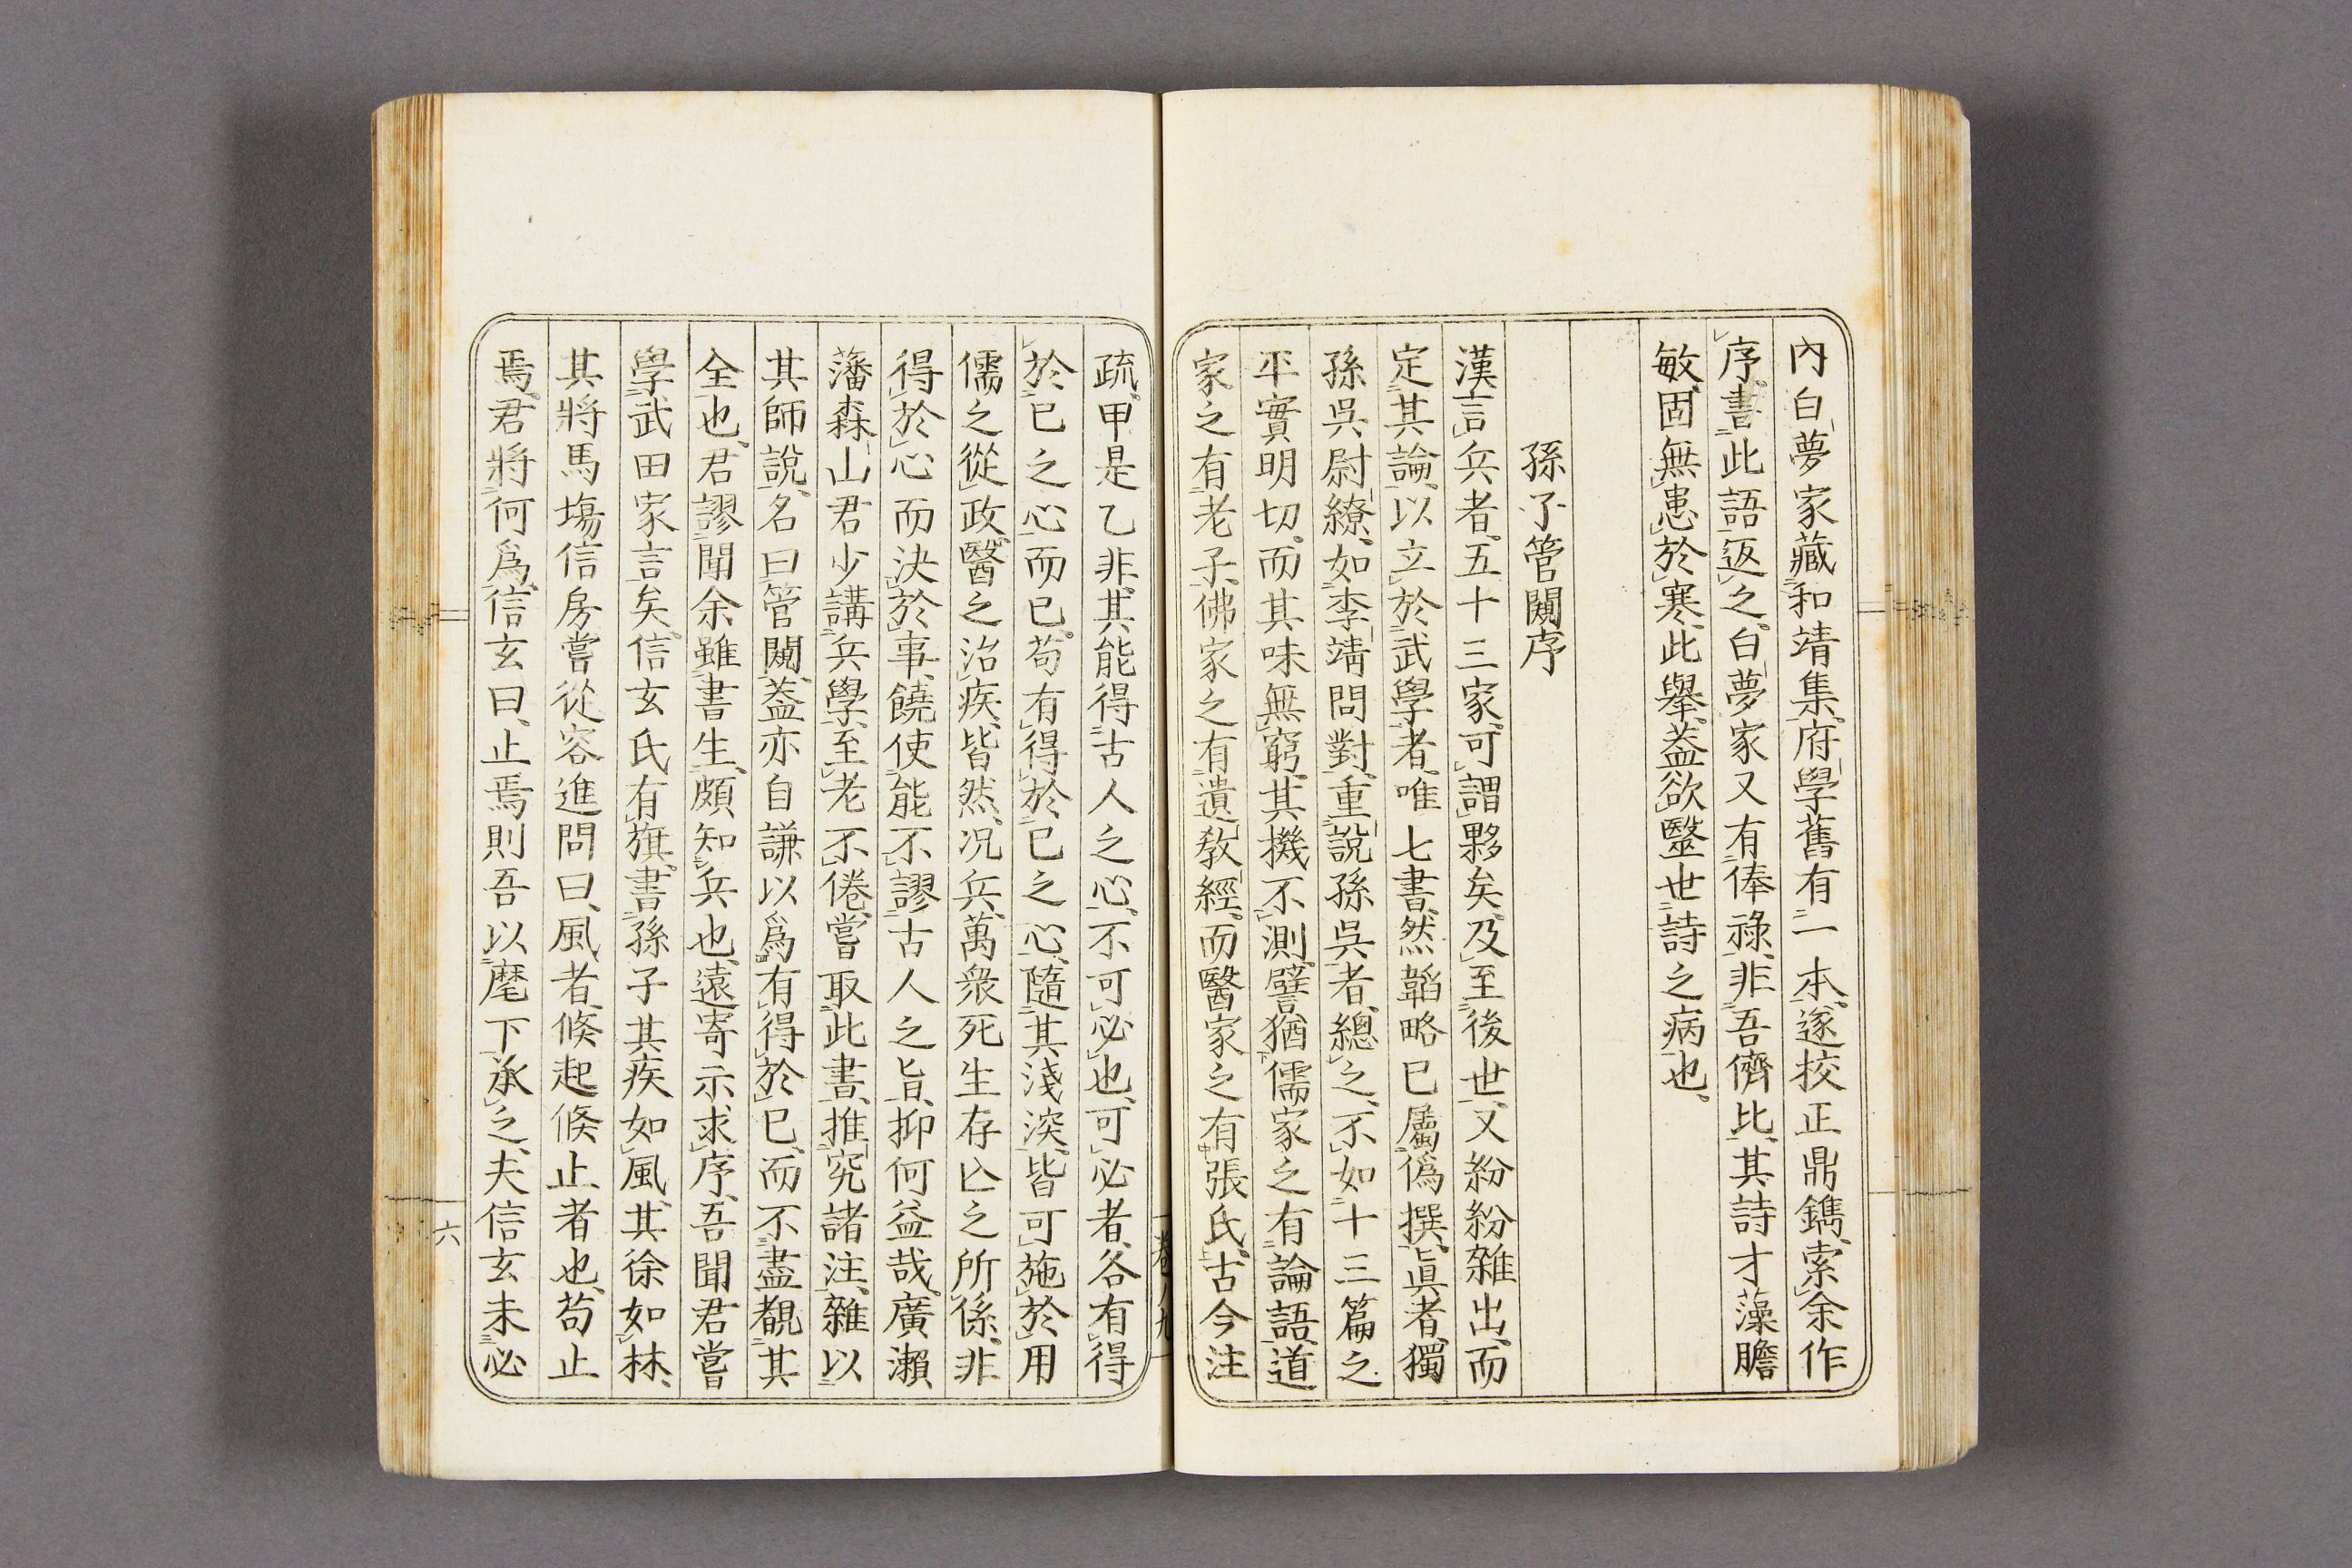 內白夢家藏和靖集。府學舊有一本。遂校正鼎鐫、索余作
序。書此語返之。白夢家又有俸祿、非吾儕比、其詩才藻贍
敏、固無患於寒、此舉、蓋欲醫世詩之病也。
孫子管闚序
漢言兵者、五十三家、可謂夥矣、及至後世、又紛紛雜出、而
定其論、以立於武學者、唯七書、然韜略已屬僞撰、眞者、獨
孫吳尉繚、如李靖問對、重說孫吳者、總之、不如十三篇之
平實明切、而其味無窮、其機不測、譬猶儒家之有論語、道
家之有老子、佛家之有遺教經、而醫家之有張氏、古今注
疏。甲是乙非、其能得古人之心、不可必也、可必者、各有得
於已之心而已。苟有得於已之心、隨其淺深、皆可施於用
儒之從政、醫之治疾、皆然、况兵、萬衆死生存亡之所係、非
得於心而決於事、饒使能不謬古人之旨、抑何益哉。廣瀨
藩森山君少講兵學、至老不倦、嘗取此書、推究諸注、雜以
其師說、名曰管闚、蓋亦自謙以爲有得於已、而不盡覩其
全也、君謬聞余雖書生、頗知兵也、遠寄示求序、吾聞君嘗
學武田家言矣。信玄氏有旗。書孫子其疾如風、其徐如林、
其將馬塲信房嘗從容進問曰、風者、倏起倏止者也、苟止
焉。君將何爲、信玄曰、止焉則吾以麾下承之、夫信玄未必
卷八九
六